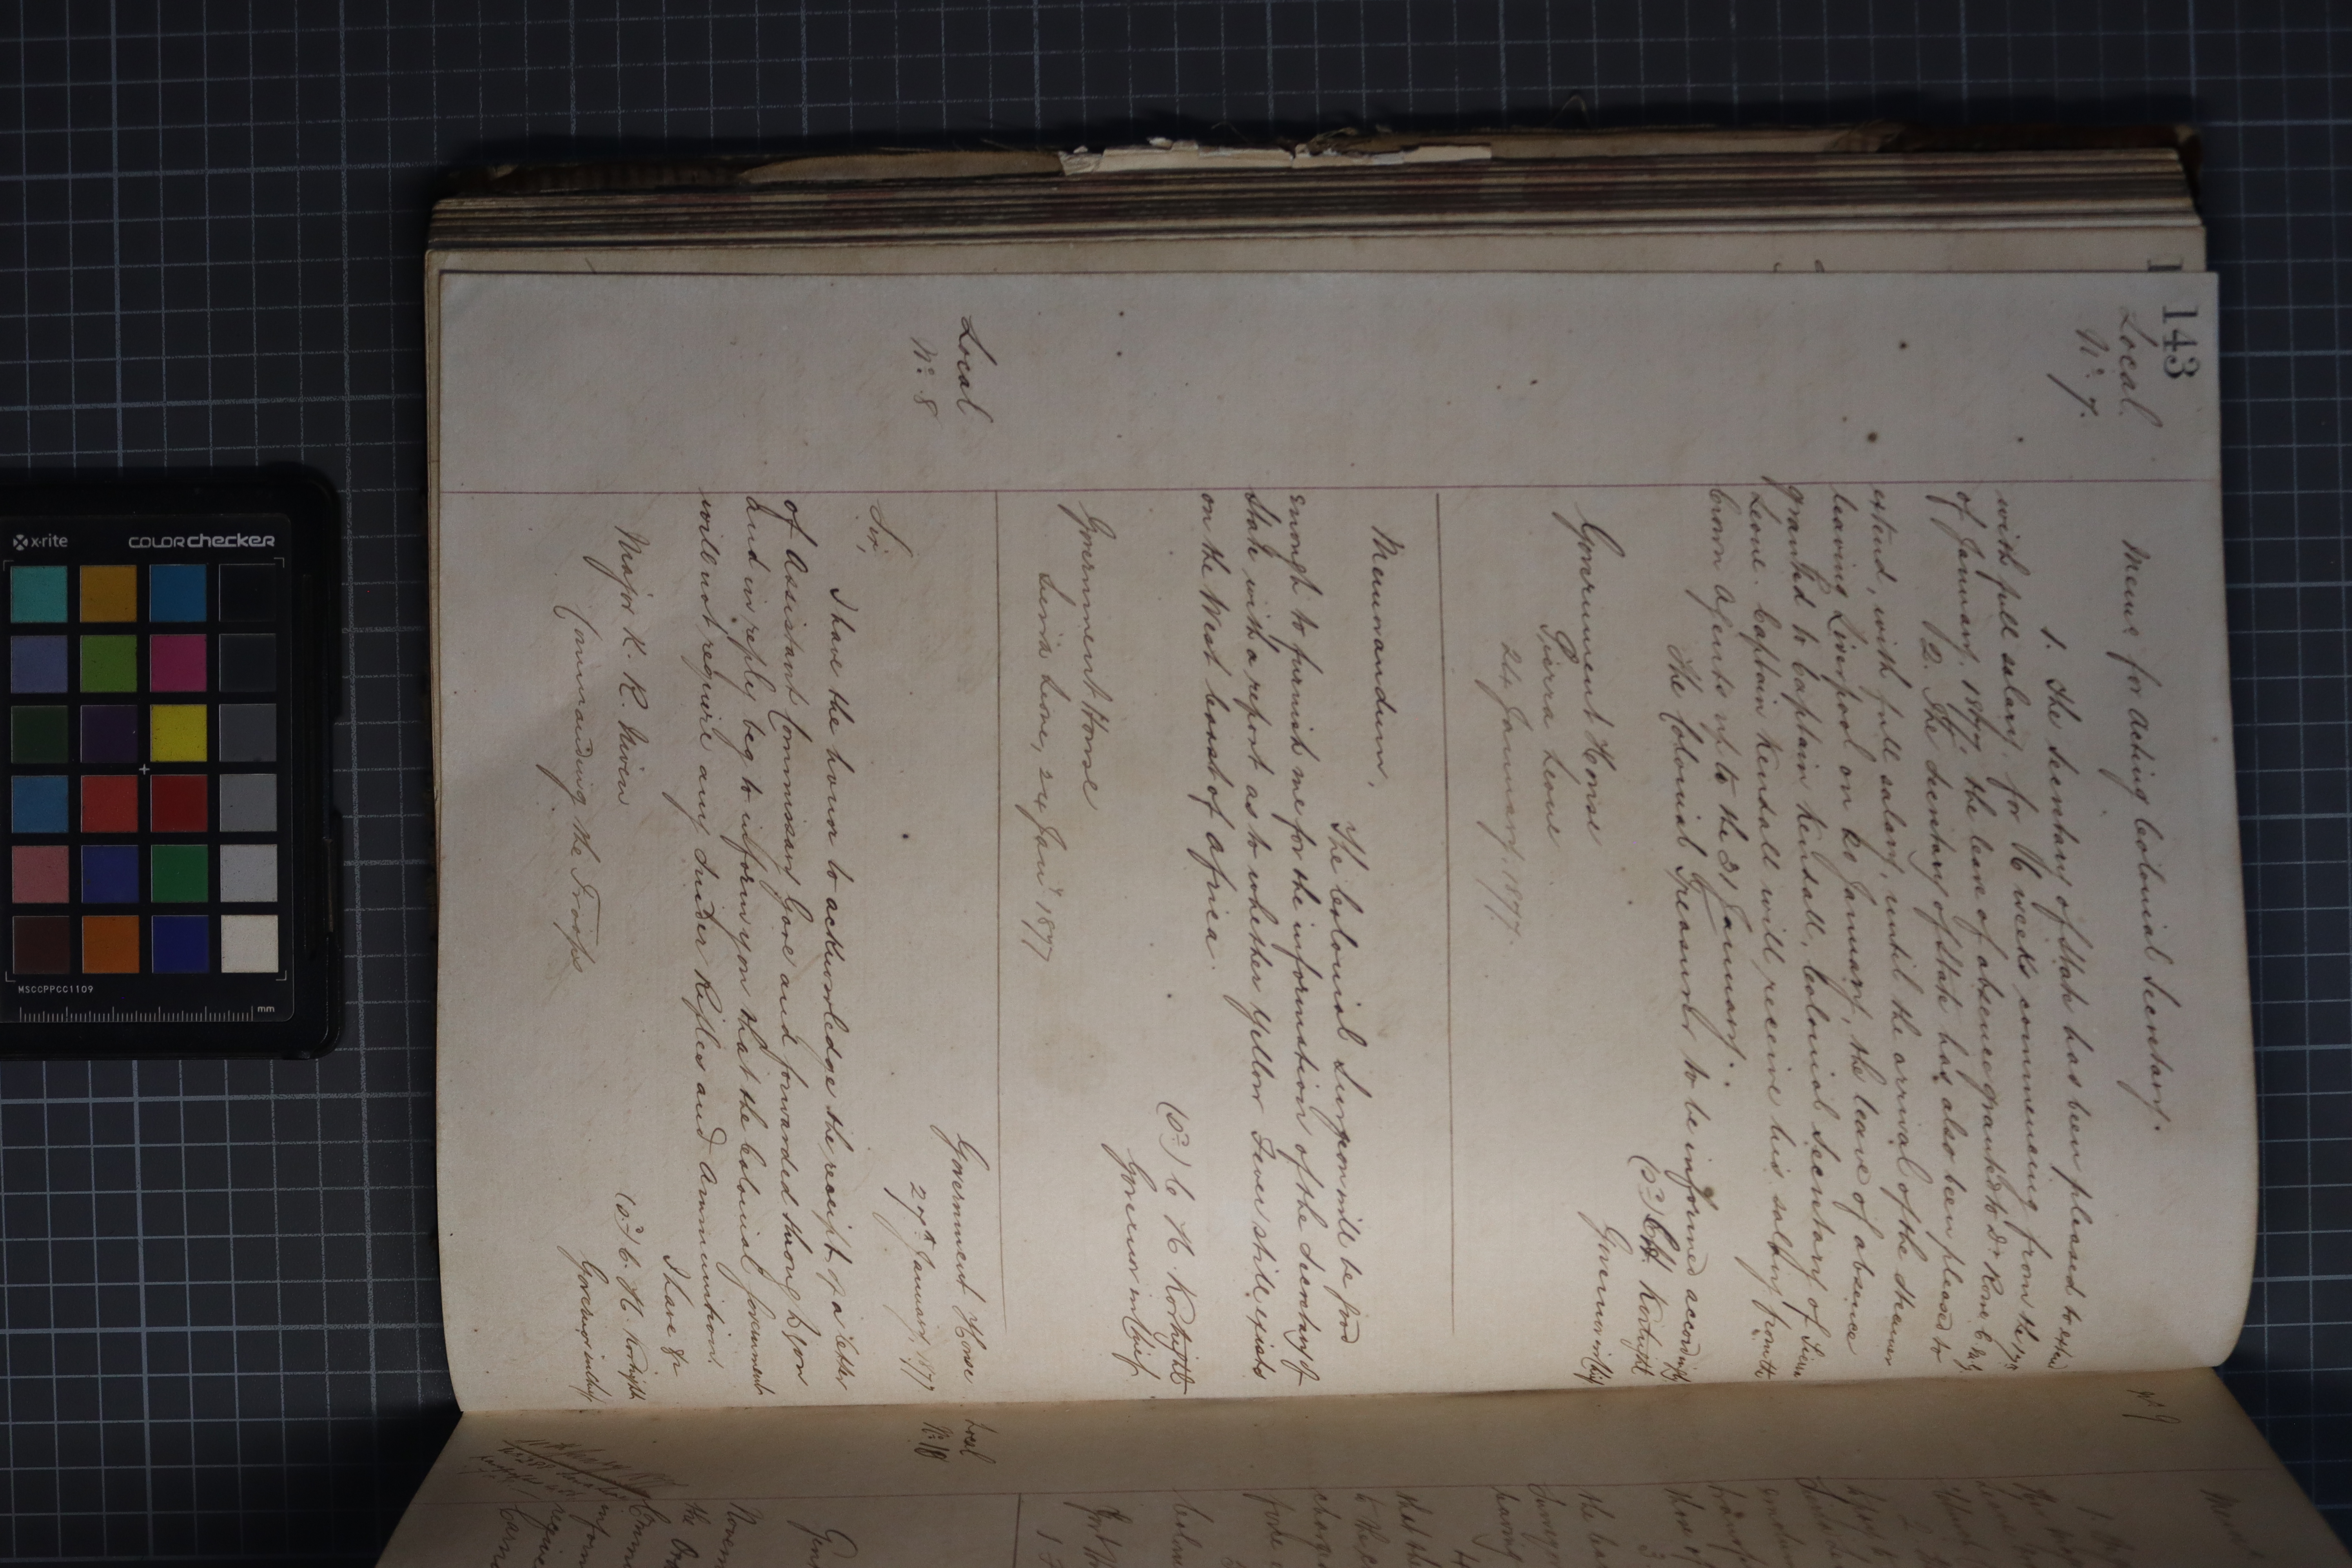 143
Local
No. 7.
Memo for Acting Colonial Secretary.
1. The Secretary of State has been pleased to extend
with full salary, for 16 weeks commencing from the
of January, 1877, the leave of absence granted to Dr Rowe C.M.G.
2. The Secretary of State has also been pleased to
extend, with full salary, until the arrival of the Steamer
leaving Liverpool on 20 January, the leave of absence
granted to Captain Kendall, Colonial Secretary of Sierra
Leone. Captain Kendall will receive his salary from the
Crown Agents up to the 31 January.
The Colonial Treasurer to be informed accordingly
(Sd) C H Kortright
Governor in Chief
Government House
Sierra Leone
24 January. 1877.
Memorandum,
The Colonial Surgeon will be good
enough to furnish me for the information of the Secretary of
State with a report as to whether Yellow Fever still exists
on the West Coast of Africa.
(Sd) C H Kortright
Governor in Chief
Government House
Sierra Leone, 24 Jany 1877
Local
No. 8
Government House
27th January, 1877
Sir,
I have the honor to acknowledge the receipt of a letter
of Assistant Commissary Gore and forwarded through you
and in reply beg to inform you that the Colonial Government
will not require any Snider Rifles and Ammunition.
I have &c
(Sd) C. H. Kortright
Governor in Chief
Major K. R. Niven
Commanding the Troops
x-rite
colorchecker
MSCCPPCC1109
mm
Local